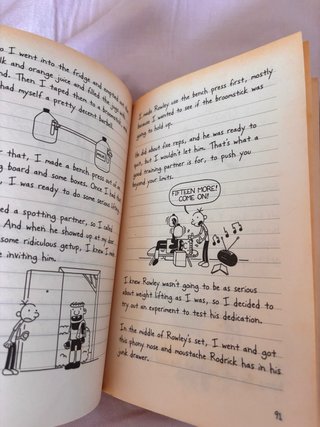 o. I went into the fridge and emptied out
lk and orange juice and filled the jugs with
nd. Then I taped them to a broom
had myself a pretty decent barbell
r that, I made a bench press out of an
g board and some boxes. Once I had
I was ready to do some serious lifting.
ed a spotting partner, so I called
And when he showed up at my door
some ridiculous getup, I knew I made
e inviting him.
I made Rowley use the bench press first, mostly
because I wanted to see if the broomstick was
going to hold up.
He did about five reps, and he was ready to
quit, but I wouldn't let him. That's what a
good training partner is for, to push you
beyond your limits.
FIFTEEN MORE!
COME ON!
I knew Rowley wasn't going to be as serious
about weight lifting as I was, so I decided to
try out an experiment to test his dedication.
In the middle of Rowley's set, I went and got
this phony nose and moustache Rodrick has in his
junk drawer.
91